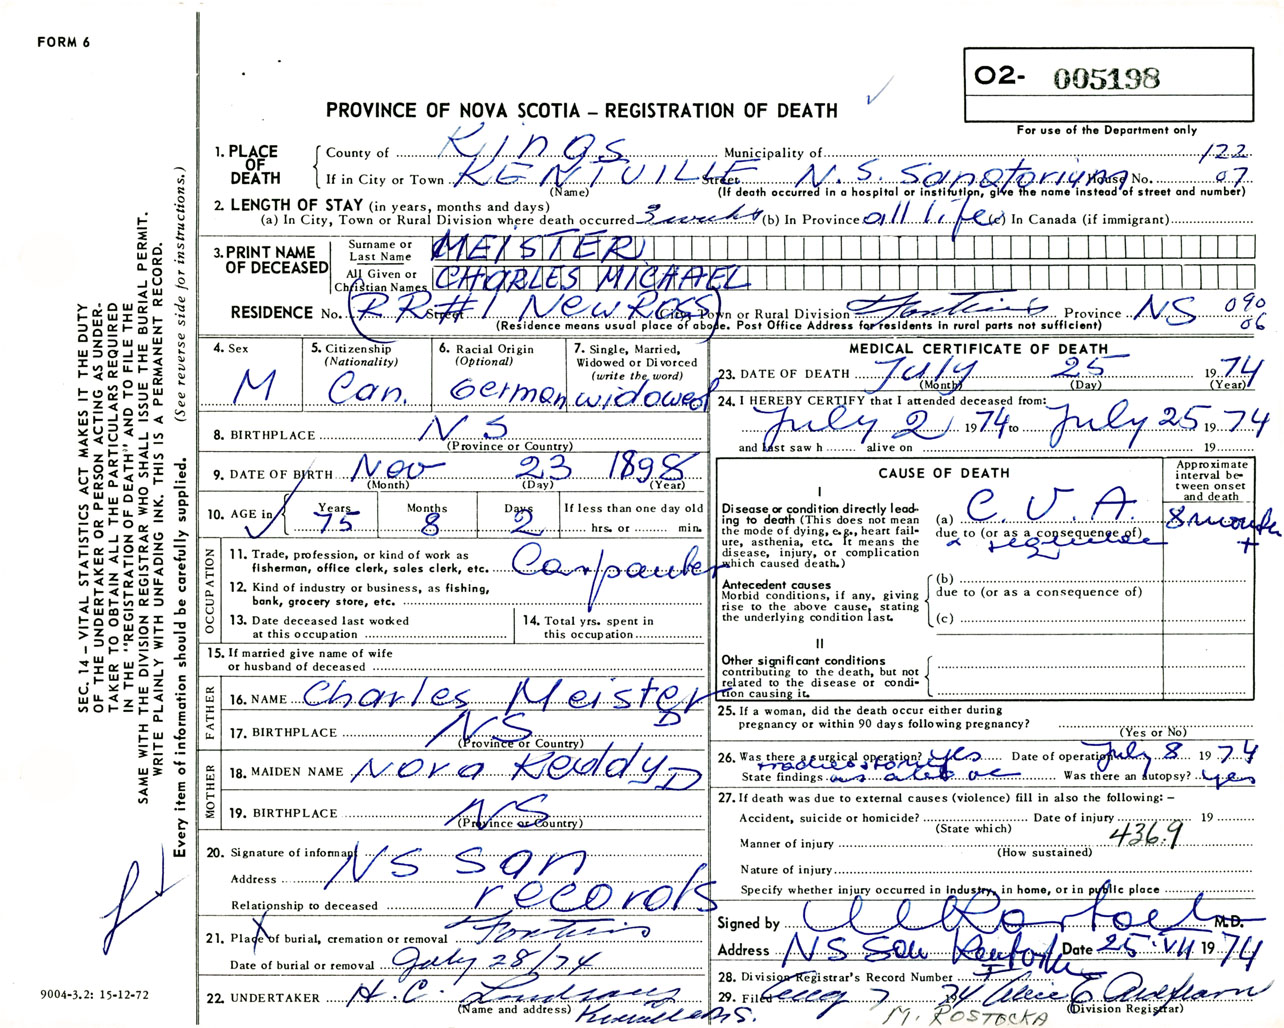 FORM 6
O2- 005198
For use of the Department only
PROVINCE OF NOVA SCOTIA – REGISTRATION OF DEATH
1. PLACE OF DEATH
County of Kings Municipality of 122
If in City or Town KENTVILLE Street N. S. Sanatorium House No. 07
(Name) (If death occurred in a hospital or institution, give the name instead of street and number)
2. LENGTH OF STAY (in years, months and days)
(a) In City, Town or Rural Division where death occurred 3 weeks (b) In Province all life (c) In Canada (if immigrant)
3. PRINT NAME OF DECEASED
Surname or Last Name MEISTER
All Given or Christian Names CHARLES MICHAEL
RESIDENCE No. (RR#1 Street New Ross) City, Town or Rural Division Province NS 090
(Residence means usual place of abode. Post Office Address for residents in rural parts not sufficient) 06
4. Sex M
5. Citizenship (Nationality) Can.
6. Racial Origin (Optional) German
7. Single, Married, Widowed or Divorced (write the word) widowed
8. BIRTHPLACE NS
(Province or Country)
9. DATE OF BIRTH Nov 23 1898
(Month) (Day) (Year)
10. AGE in Years 75 Months 8 Days 2 If less than one day old hrs. or min.
OCCUPATION
11. Trade, profession, or kind of work as fisherman, office clerk, sales clerk, etc. Carpanter
12. Kind of industry or business, as fishing, bank, grocery store, etc.
13. Date deceased last worked at this occupation
14. Total yrs. spent in this occupation
15. If married give name of wife or husband of deceased
FATHER
16. NAME Charles Meister
17. BIRTHPLACE NS
(Province or Country)
MOTHER
18. MAIDEN NAME Nora Reddy
19. BIRTHPLACE NS
(Province or Country)
20. Signature of informant NS San
Address records
Relationship to deceased
21. Place of burial, cremation or removal
Date of burial or removal July 28/74
22. UNDERTAKER H. C.
(Name and address) N.S.
MEDICAL CERTIFICATE OF DEATH
23. DATE OF DEATH July 25 1974
(Month) (Day) (Year)
24. I HEREBY CERTIFY that I attended deceased from:
July 2 1974 to July 25 1974
and last saw h alive on 19
CAUSE OF DEATH
Approximate interval between onset and death
I
Disease or condition directly leading to death (This does not mean the mode of dying, e.g., heart failure, asthenia, etc. It means the disease, injury, or complication which caused death.)
(a) C. V. A. 8 months +
due to (or as a consequence of)
Antecedent causes
Morbid conditions, if any, giving rise to the above cause, stating the underlying condition last.
(b)
due to (or as a consequence of)
(c)
II
Other significant conditions contributing to the death, but not related to the disease or condition causing it.
25. If a woman, did the death occur either during pregnancy or within 90 days following pregnancy?
(Yes or No)
26. Was there a surgical operation? yes Date of operation July 8 1974
State findings Was there an autopsy? yes
27. If death was due to external causes (violence) fill in also the following: –
Accident, suicide or homicide? Date of injury 19
(State which)
Manner of injury 436.9
(How sustained)
Nature of injury
Specify whether injury occurred in industry, in home, or in public place
Signed by M.D.
Address NS San Date 25 VII 1974
28. Division Registrar's Record Number
29. Filed Aug 7 1974
M. ROSTOCKA (Division Registrar)
SEC. 14 – VITAL STATISTICS ACT MAKES IT THE DUTY
OF THE UNDERTAKER OR PERSON ACTING AS UNDER-
TAKER TO OBTAIN ALL THE PARTICULARS REQUIRED
IN THE "REGISTRATION OF DEATH" AND TO FILE THE
SAME WITH THE DIVISION REGISTRAR WHO SHALL ISSUE THE BURIAL PERMIT.
WRITE PLAINLY WITH UNFADING INK. THIS IS A PERMANENT RECORD.
Every item of information should be carefully supplied. (See reverse side for instructions.)
9004-3.2: 15-12-72